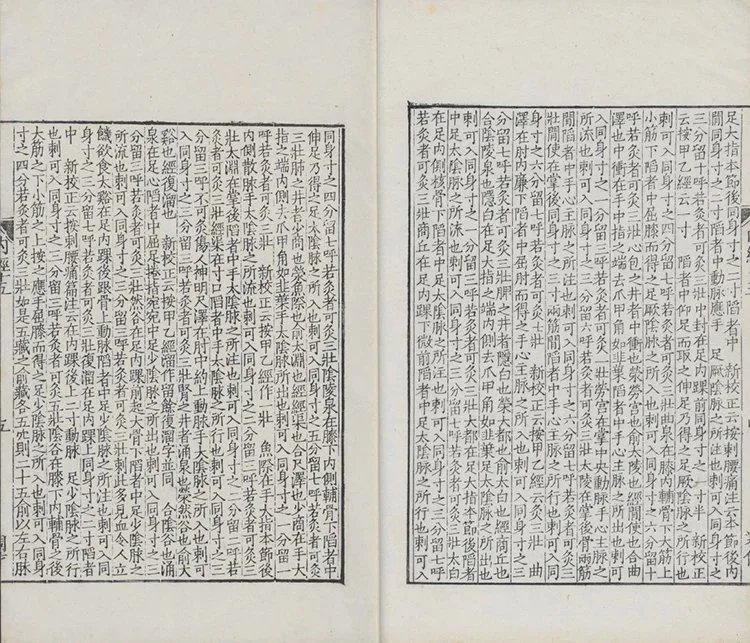 足大指本節後同身寸之二寸陷者中　新校正云按刺腰痛注云本節後内
間同身寸之二寸陷者中動脉應手　足厥陰脉之所注也刺可入同身寸之
三分留十呼若灸者可灸三壯中封在足内踝前同身寸之一寸半　新校正
云按甲乙經云一寸　陷者中仰足而取之伸足乃得之足厥陰脉之所行也
刺可入同身寸之四分留七呼若灸者可灸三壯曲泉在膝内輔骨下大筋上
小筋下陷者中屈膝而得之足厥陰脉之所入也刺可入同身寸之六分留十
呼若灸者可灸三壯心包之井者中衝也滎勞宫也俞大陵也經間使也合曲
澤也中衝在手中指之端去爪甲角如韭葉陷者中手心主脉之所出也刺可
入同身寸之一分留三呼若灸者可灸一壯勞宫在掌中央動脉手心主脉之
所流也刺可入同身寸之三分留六呼若灸者可灸三壯大陵在掌後骨兩筋
間陷者中手心主脉之所注也刺可入同身寸之六分留七呼若灸者可灸三
壯間使在掌後同身寸之三寸兩筋間陷者中手心主脉之所行也刺可入同
身寸之六分留七呼若灸者可灸七壯　新校正云按甲乙經云灸三壯　曲
澤在肘内廉下陷者中屈肘而得之手心主脉之所入也刺可入同身寸之三
分留七呼若灸者可灸三壯脾之井者隱白也滎大都也俞太白也經商丘也
合陰陵泉也隱白在足大指之端内側去爪甲角如韭葉足太陰脉之所出也
刺可入同身寸之一分留三呼若灸者可灸三壯大都在足大指本節後陷者
中足太陰脉之所流也刺可入同身寸之三分留七呼若灸者可灸三壯太白
在足内側核骨下陷者中足太陰脉之所注也刺可入同身寸之三分留七呼
若灸者可灸三壯商丘在足内踝下微前陷者中足太陰脉之所行也刺可入
同身寸之四分留七呼若灸者可灸三壯陰陵泉在膝下内側輔骨下陷者中
伸足乃得之足太陰脉之所入也刺可入同身寸之五分留七呼若灸者可灸
三壯肺之井者少商也滎魚際也俞太淵也經經渠也合尺澤也少商在手大
指之端内側去爪甲角如韭葉手太陰脉之所出也刺可入同身寸之一分留一
呼若灸者可灸三壯　新校正云按甲乙經作一壯　魚際在手大指本節後
内側散脉手太陰脉之所流也刺可入同身寸之二分留三呼若灸者可灸三
壯太淵在掌後陷者中手太陰脉之所注也刺可入同身寸之二分留二呼若
灸者可灸三壯經渠在寸口陷者中手太陰脉之所行也刺可入同身寸之三
分留三呼不可灸傷人神明尺澤在肘中約上動脉手太陰脉之所入也刺可
入同身寸之三分留三呼若灸者可灸三壯腎之井者涌泉也滎然谷也俞太
谿也經復溜也　新校正云按甲乙經溜作留餘復溜字並同　合陰谷也涌
泉在足心陷者中屈足捲指宛宛中足少陰脉之所出也刺可入同身寸之三
分留三呼若灸者可灸三壯然谷在足内踝前起大骨下陷者中足少陰脉之
所流也刺可入同身寸之三分留三呼若灸者可灸三壯刺此多見血令人立
飢欲食太谿在足内踝後跟骨上動脉陷者中足少陰脉之所注也刺可入同
身寸之三分留七呼若灸者可灸三壯復溜在足内踝上同身寸之二寸陷者
中　新校正云按刺腰痛篇注云在内踝後上二寸動脉　足少陰脉之所行
也刺可入同身寸之三分留三呼若灸者可灸五壯陰谷在膝下内輔骨之後
大筋之下小筋之上按之應手屈膝而得之足少陰脉之所入也刺可入同身
寸之四分若灸者可灸三壯如是五藏之俞藏各五穴則二十五俞以左右脉
内經五
五